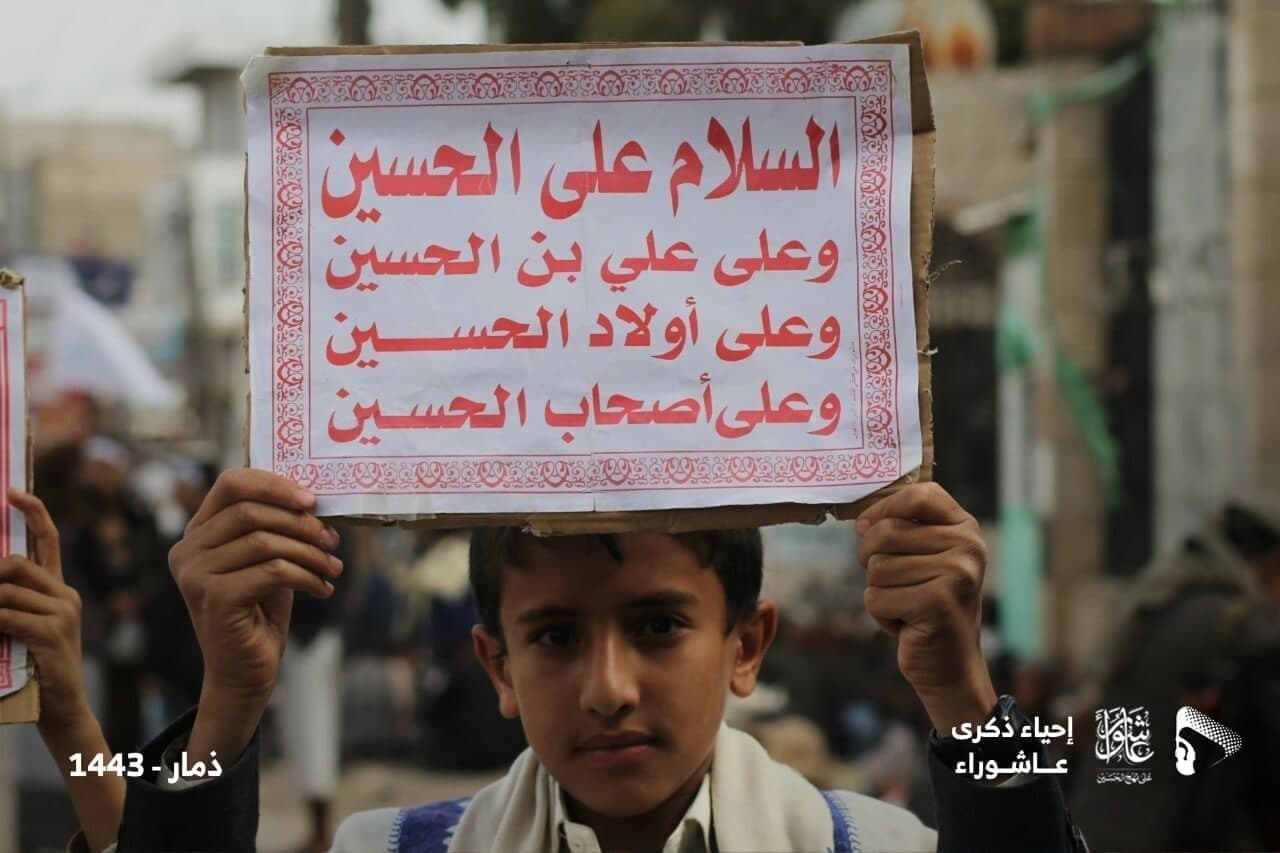 السلام على الحسين
وعلى علي بن الحسين
وعلى أولاد الحسين
وعلى أصحاب الحسين
إحياء ذكرى
عاشوراء
عاشوراء
على نهج الحسين
ذمار - 1443